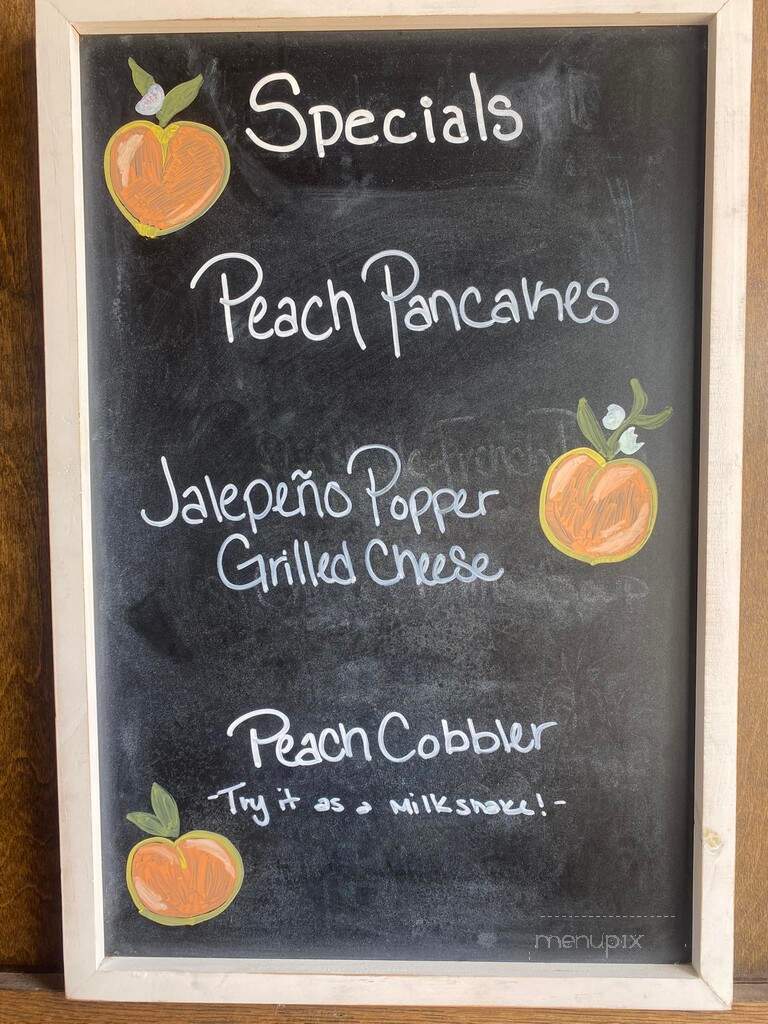 Specials
Peach Pancakes
Jalepeño Popper
Grilled Cheese
Peach Cobbler
-Try it as a milkshake!-
menupix